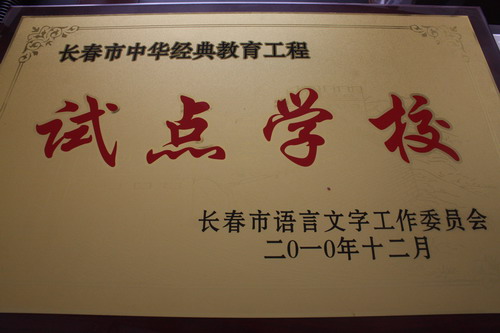 长春市中华经典教育工程
试点学校
长春市语言文字工作委员会
二〇一〇年十二月